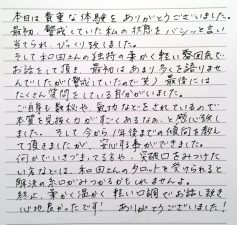 本日は貴重な体験をありがとうございました。
最初、警戒していた私の状態をバシッと言い
当てられ、びっくり致しました。
そして和田さんの独特の事かく軽い雰囲気で
お話をして頂き、最初はあまり多くを語りませ
んでしたが(警戒していたので笑)最後には
たくさん質問をしている自分がいました。
ご自身も数秘や、気功などをされているので
本質を見抜く力がすごくあるなぁと感じ致
しました。そして今から1年後までの傾向を教え
て頂きましたが、安心する事ができました。
何かでいきづまってる方や、突破口をみつけた
い方などは、和田さんのタロットを受けられると
解決の糸口がみつかるかもしれませんよ。
終止、事かく温かく軽い口調でお話し頂き
心地良かったです! ありがとうございました!